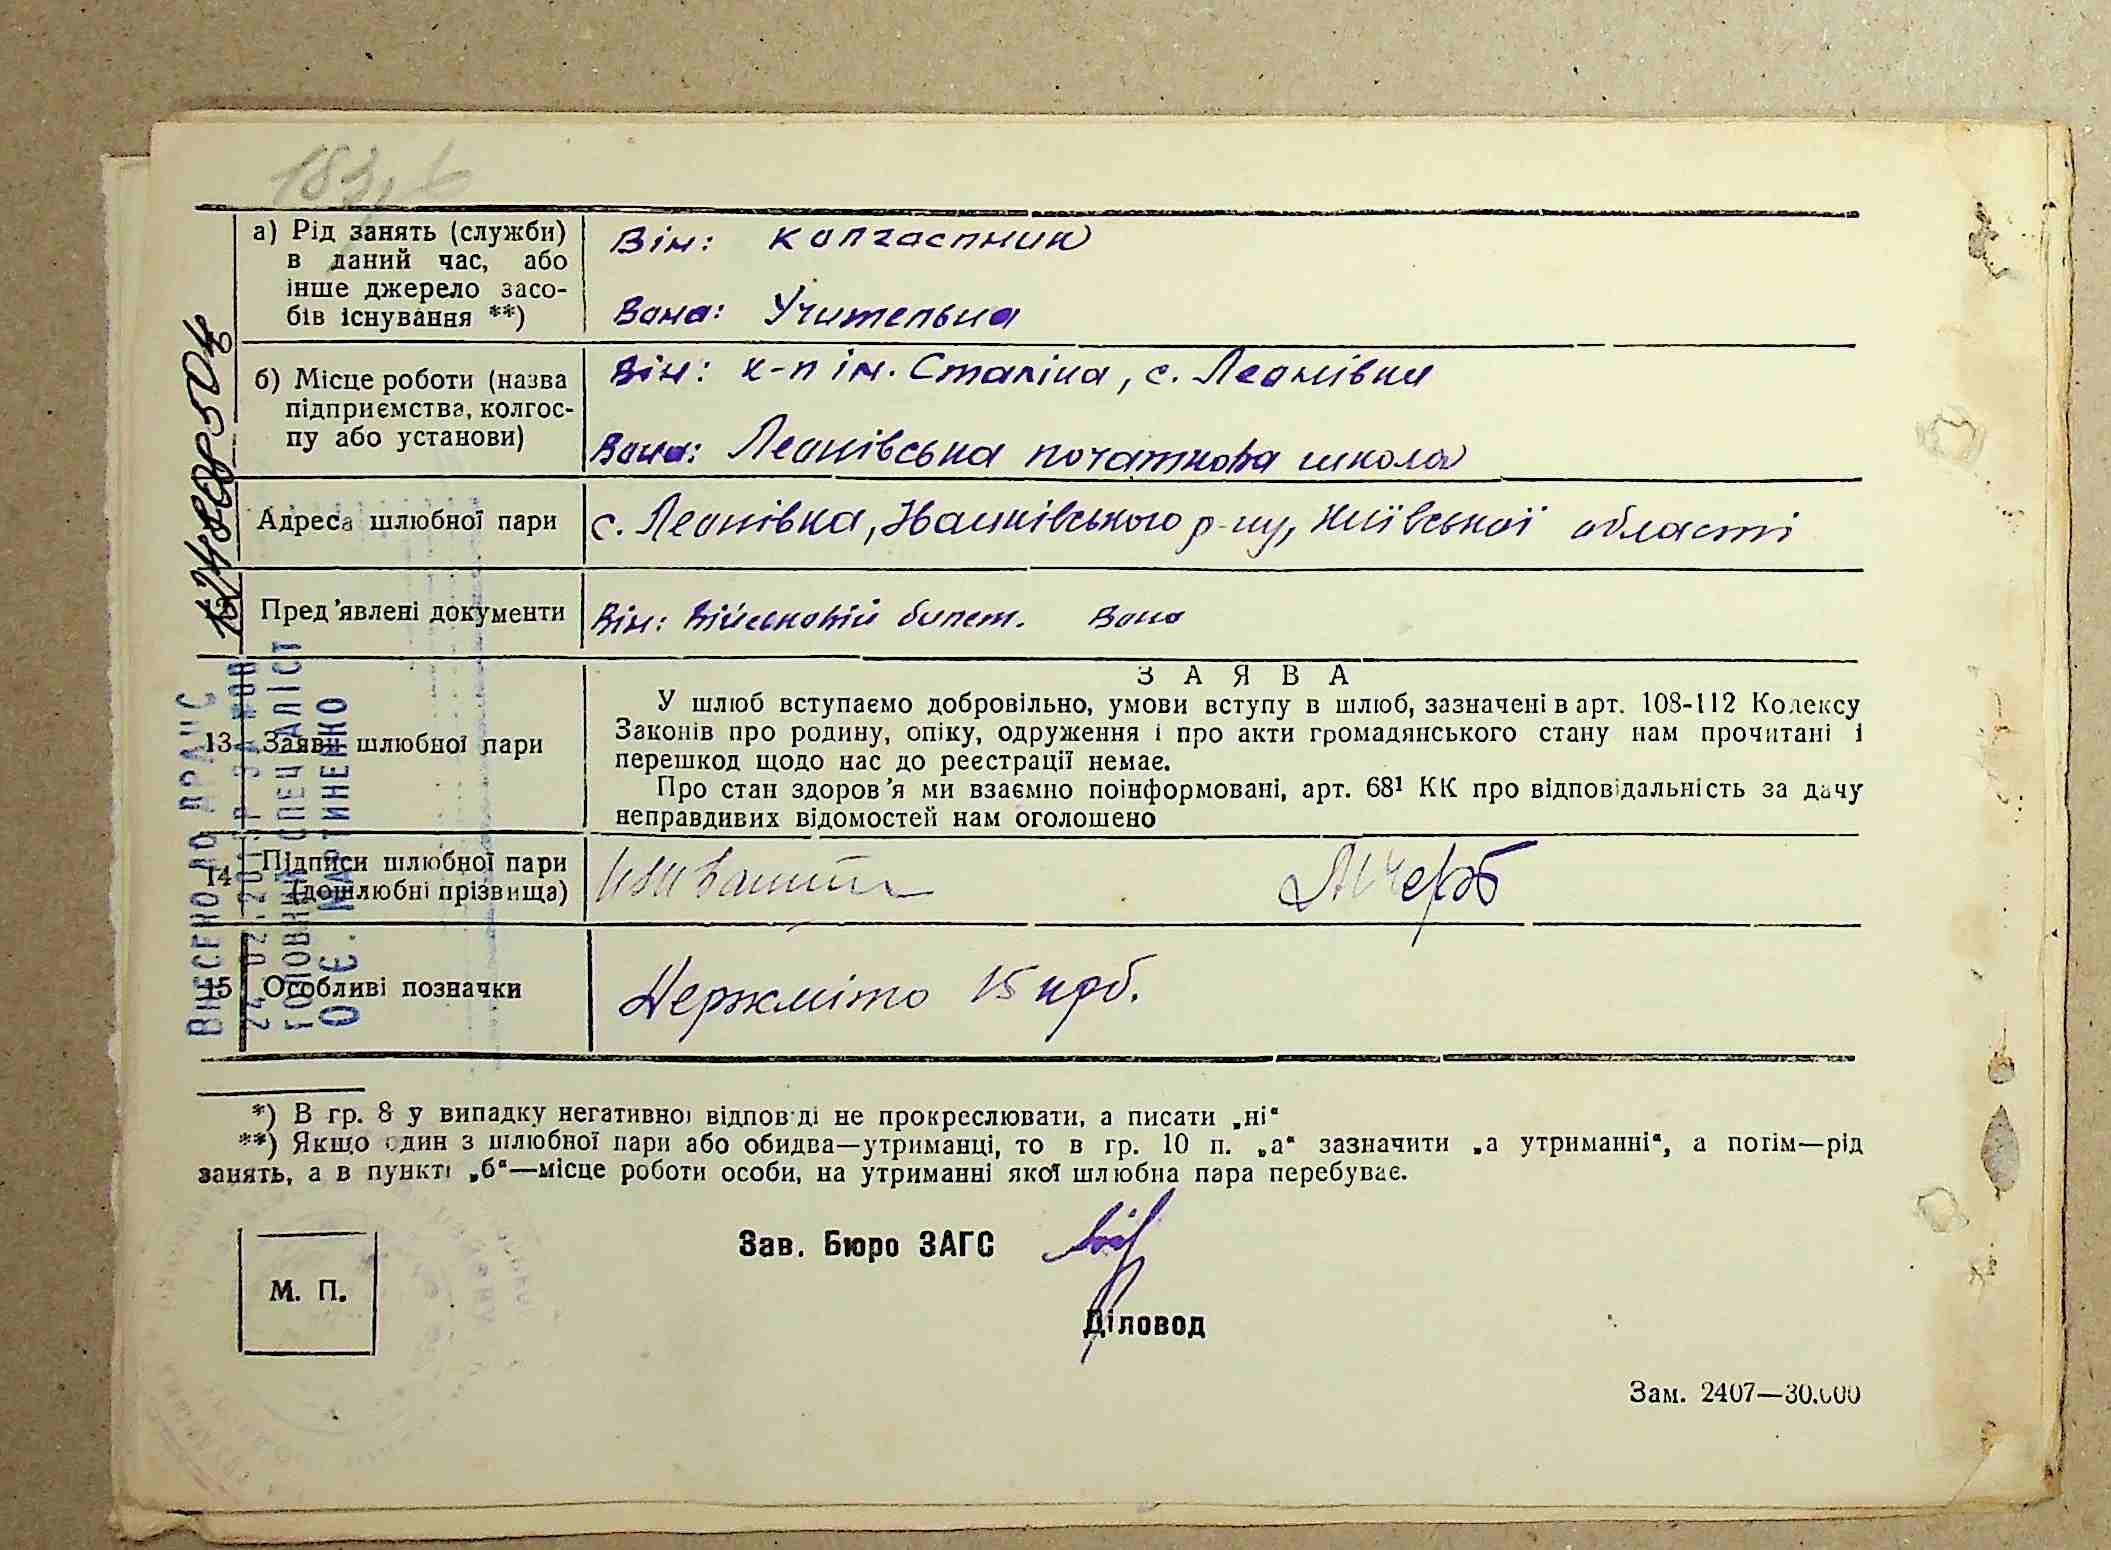 а) Рід занять (служби)
в даний час, або
інше джерело засо-
бів існування **)
Він: колгоспник
Вона: Учителька
б) Місце роботи (назва
підприємства, колгос-
пу або установи)
Він: к-п ім. Сталіна, с. Леонівка
Вона: Леонівська початкова школа
Адреса шлюбної пари
с. Леонівка, Іванківського р-ну, Київської області
12 Пред'явлені документи
Він: Військовій билет. Вона
13 Заяви шлюбної пари
ЗАЯВА
У шлюб вступаємо добровільно, умови вступу в шлюб, зазначені в арт. 108-112 Кодексу
Законів про родину, опіку, одруження і про акти громадянського стану нам прочитані і
перешкод щодо нас до реєстрації немає.
Про стан здоров'я ми взаємно поінформовані, арт. 68¹ КК про відповідальність за дачу
неправдивих відомостей нам оголошено
14 Підписи шлюбної пари
(дошлюбні прізвища)
15 Особливі позначки
Держмито 15 крб.
ВНЕСЕНО ДО ДРАЦС
ГОЛОВНИЙ СПЕЦІАЛІСТ
О.Є. МАРТИНЕНКО
*) В гр. 8 у випадку негативної відповіді не прокреслювати, а писати „ні“
**) Якщо один з шлюбної пари або обидва—утриманці, то в гр. 10 п. „а“ зазначити „а утриманні“, а потім—рід
занять, а в пункті „б“—місце роботи особи, на утриманні якої шлюбна пара перебуває.
Зав. Бюро ЗАГС
М. П.
Діловод
Зам. 2407—30.000